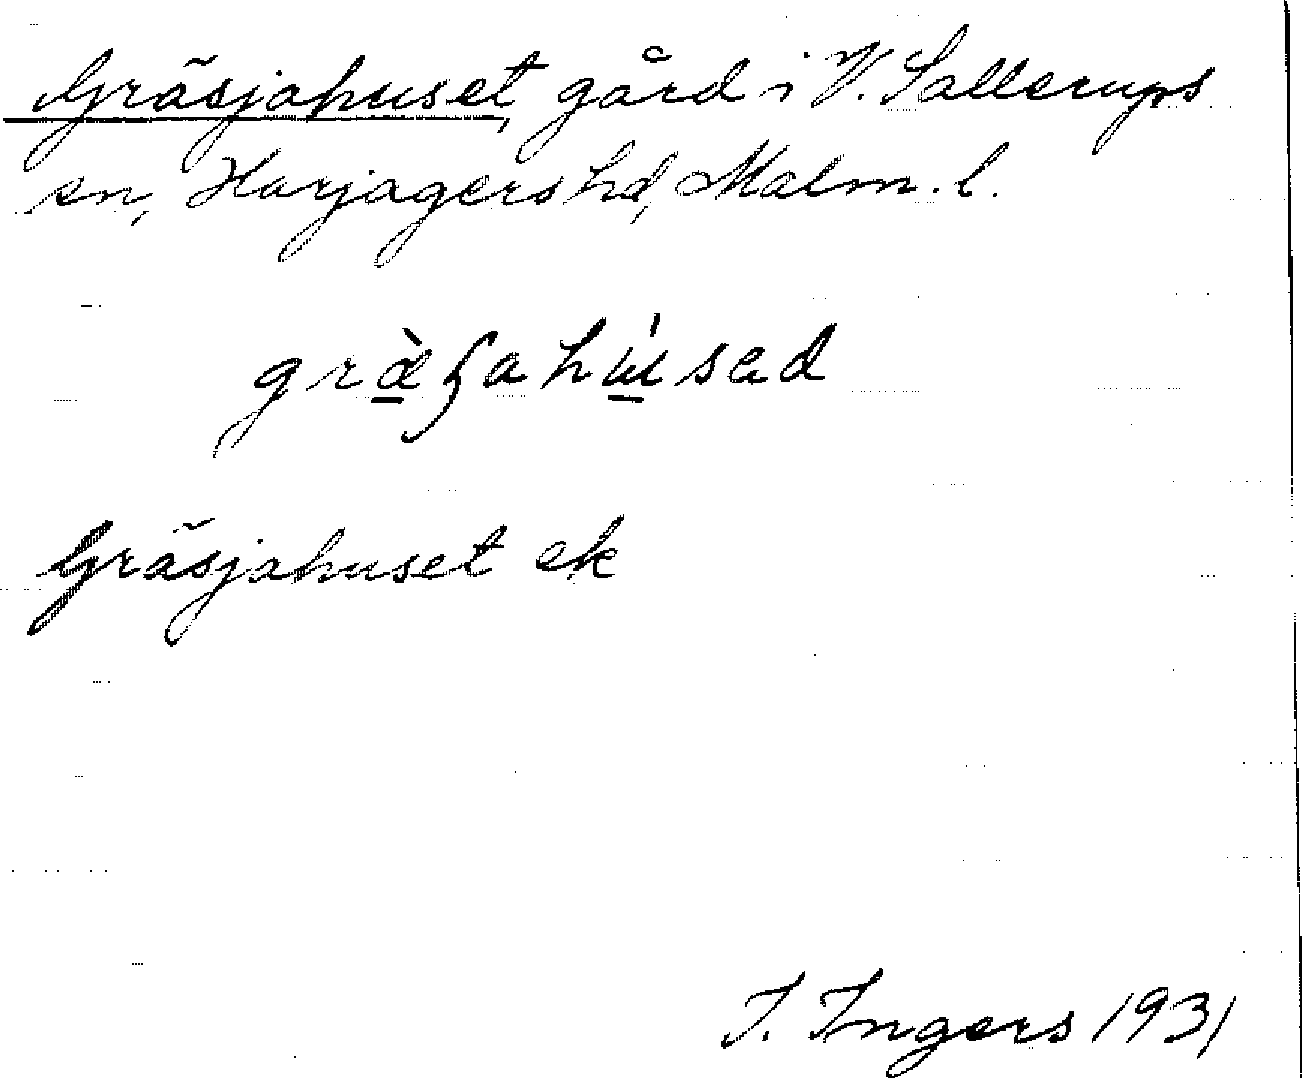 Gräsjahuset, gård i V. Sallerups
sn, Harjagers hd, Malm. l.
Gräsjahuset ek
I. Ingers 1931